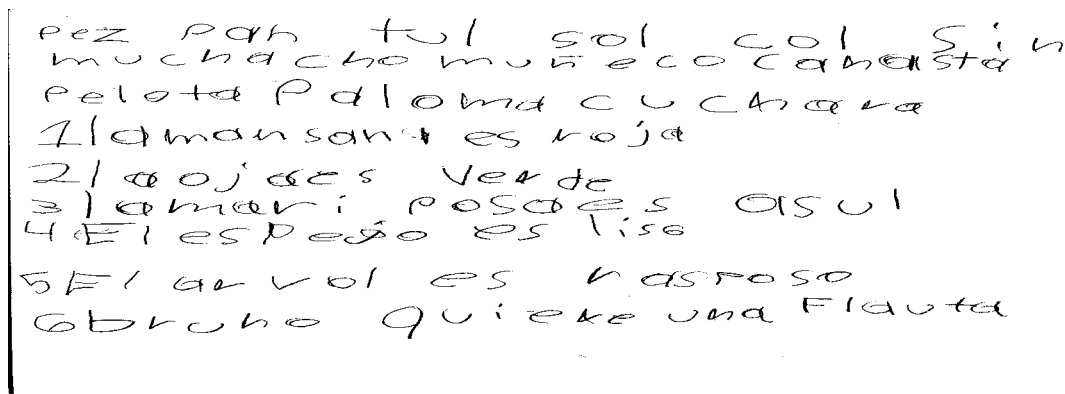 pez pan tul sol col sin
muchacho muñeco canasta
pelota paloma cuchara
1 lamansana es roja
2 laojaes verde
3 lamari posaes asul
4 El espejo es liso
5 El arvol es rasposo
6 bruno quiere una Flauta